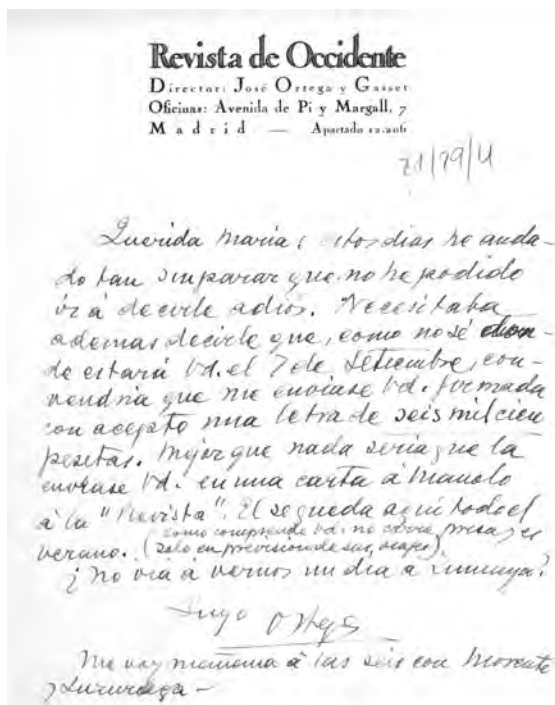 Revista de Occidente
Director: José Ortega y Gasset
Oficinas: Avenida de Pi y Margall, 7
Madrid — Apartado 12.206
Querida María: estos dias he anda-
do tan sin parar que no he podido
ir á decirle adios. Necesitaba
ademas decirle que, como no sé don-
de estará Vd. el 7 de Setiembre, con-
vendria que me enviase Vd. firmada
con acepto una letra de seis mil cien
pesetas. Mejor que nada seria que la
enviase Vd. en una carta á Manolo
á la "Revista". El se queda aquí todo el
verano. (como comprende Vd. no corria prisa y es
solo en prevision de sus viajes).
¿No irá á vernos un dia a Zumaya?
Suyo Ortega
Me voy mañana á las seis con Morente
y